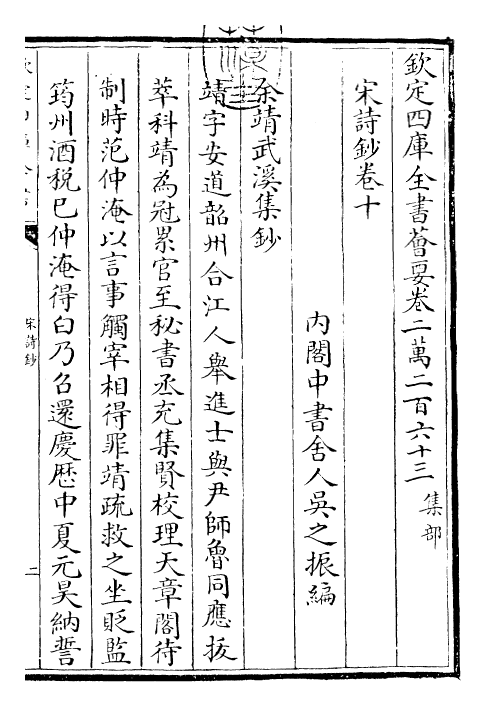 欽定四庫全書薈要卷二萬二百六十三 集部
宋詩鈔卷十
內閣中書舍人吳之振編
余靖武溪集鈔
靖字安道韶州合江人舉進士與尹師魯同應拔
萃科靖為冠累官至秘書丞充集賢校理天章閣待
制時范仲淹以言事觸宰相得罪靖疏救之坐貶監
筠州酒稅已仲淹得白乃召還慶歷中夏元昊納誓
宋詩鈔
二